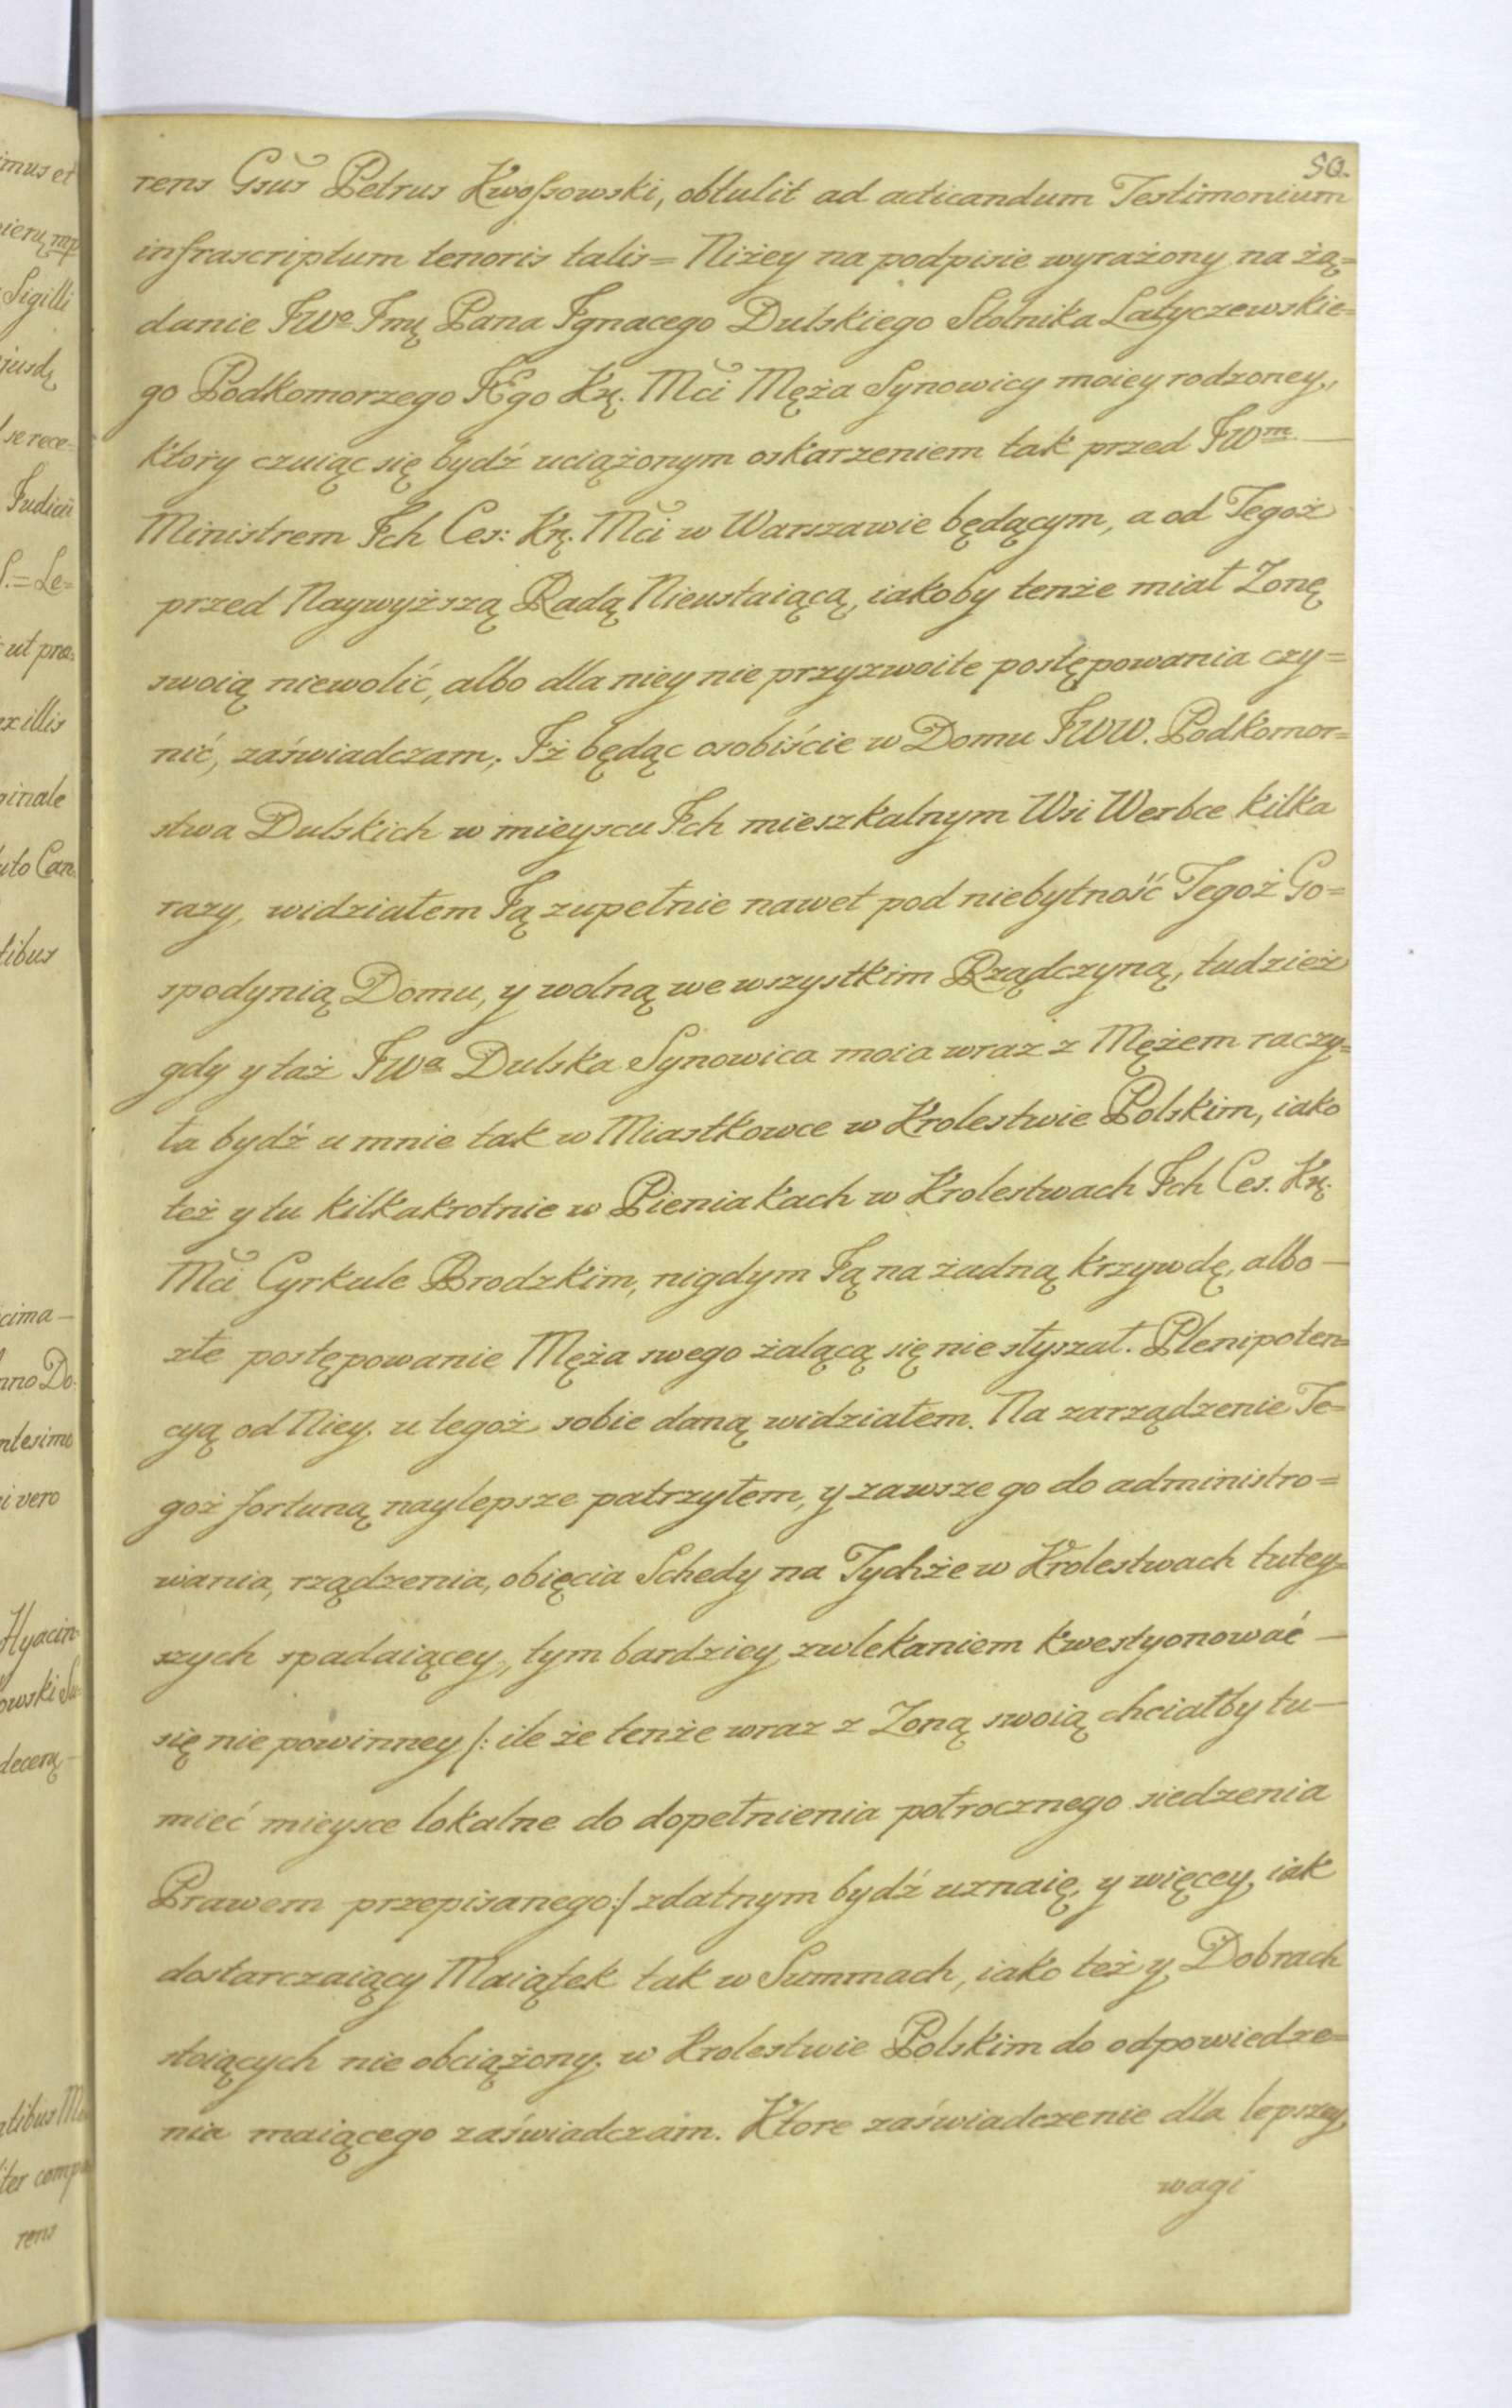 50.
rens Gsus Petrus Kwossowski, obtulit ad acticandum Testimonium
infrascriptum tenoris talis = Niżey na podpisie wyrażony na żą=
danie JWo Jmę Pana Jgnacego Dulskiego Stolnika Latyczewskie=
go Podkomorzego JEgo Kr. Mci Męża Synowicy moiey rodzoney,
ktory czuiąc się bydź uciążonym oskarzeniem tak przed JWm —
Ministrem Jch Ces: Kr. Mci w Warszawie będącym, a od Tegoż
przed Naywyższą Radą Nieustaiącą, iakoby tenże miał Zonę
swoią niewolić, albo dla niey nie przyzwoite postępowania czy=
nić, zaświadczam, Jż będąc osobiście w Domu JWW. Podkomor=
stwa Dulskich w mieyscu Jch mieszkalnym Wsi Werbce kilka
razy, widziałem Ją zupełnie nawet pod niebytność Tegoż Go=
spodynią Domu, y wolną we wszystkim Rządczyną, tudzież
gdy y taż JWa Dulska Synowica moia wraz z Mężem raczy=
ła bydź u mnie tak w Miastkowce w Krolestwie Polskim, iako
też y tu kilkakrotnie w Pieniakach w Krolestwach Jch Ces. Kr.
Mci Cyrkule Brodzkim, nigdym Ją na żadną krzywdę, albo —
złe postępowanie Męża swego żalącą się nie słyszał. Plenipoten=
cyą od Niey u tegoż sobie daną widziałem. Na zarządzenie Te=
goż fortuną naylepsze patrzyłem, y zawsze go do administro=
wania, rządzenia, obięcia Schedy na Tychże w Krolestwach tutey=
szych spadaiącey, tym bardziey zwlekaniem kwestyonować —
się nie powinney /: ile że tenże wraz z Zoną swoią chciałby tu —
mieć mieysce lokalne do dopełnienia połrocznego siedzenia
Prawem przepisanego :/ zdatnym bydź uznaię, y więcey iak
dostarczaiący Maiątek tak w Summach, iako też y Dobrach
stoiących nie obciążony w Krolestwie Polskim do odpowiedze=
nia maiącego zaświadczam. Ktore zaświadczenie dla lepszey
wagi